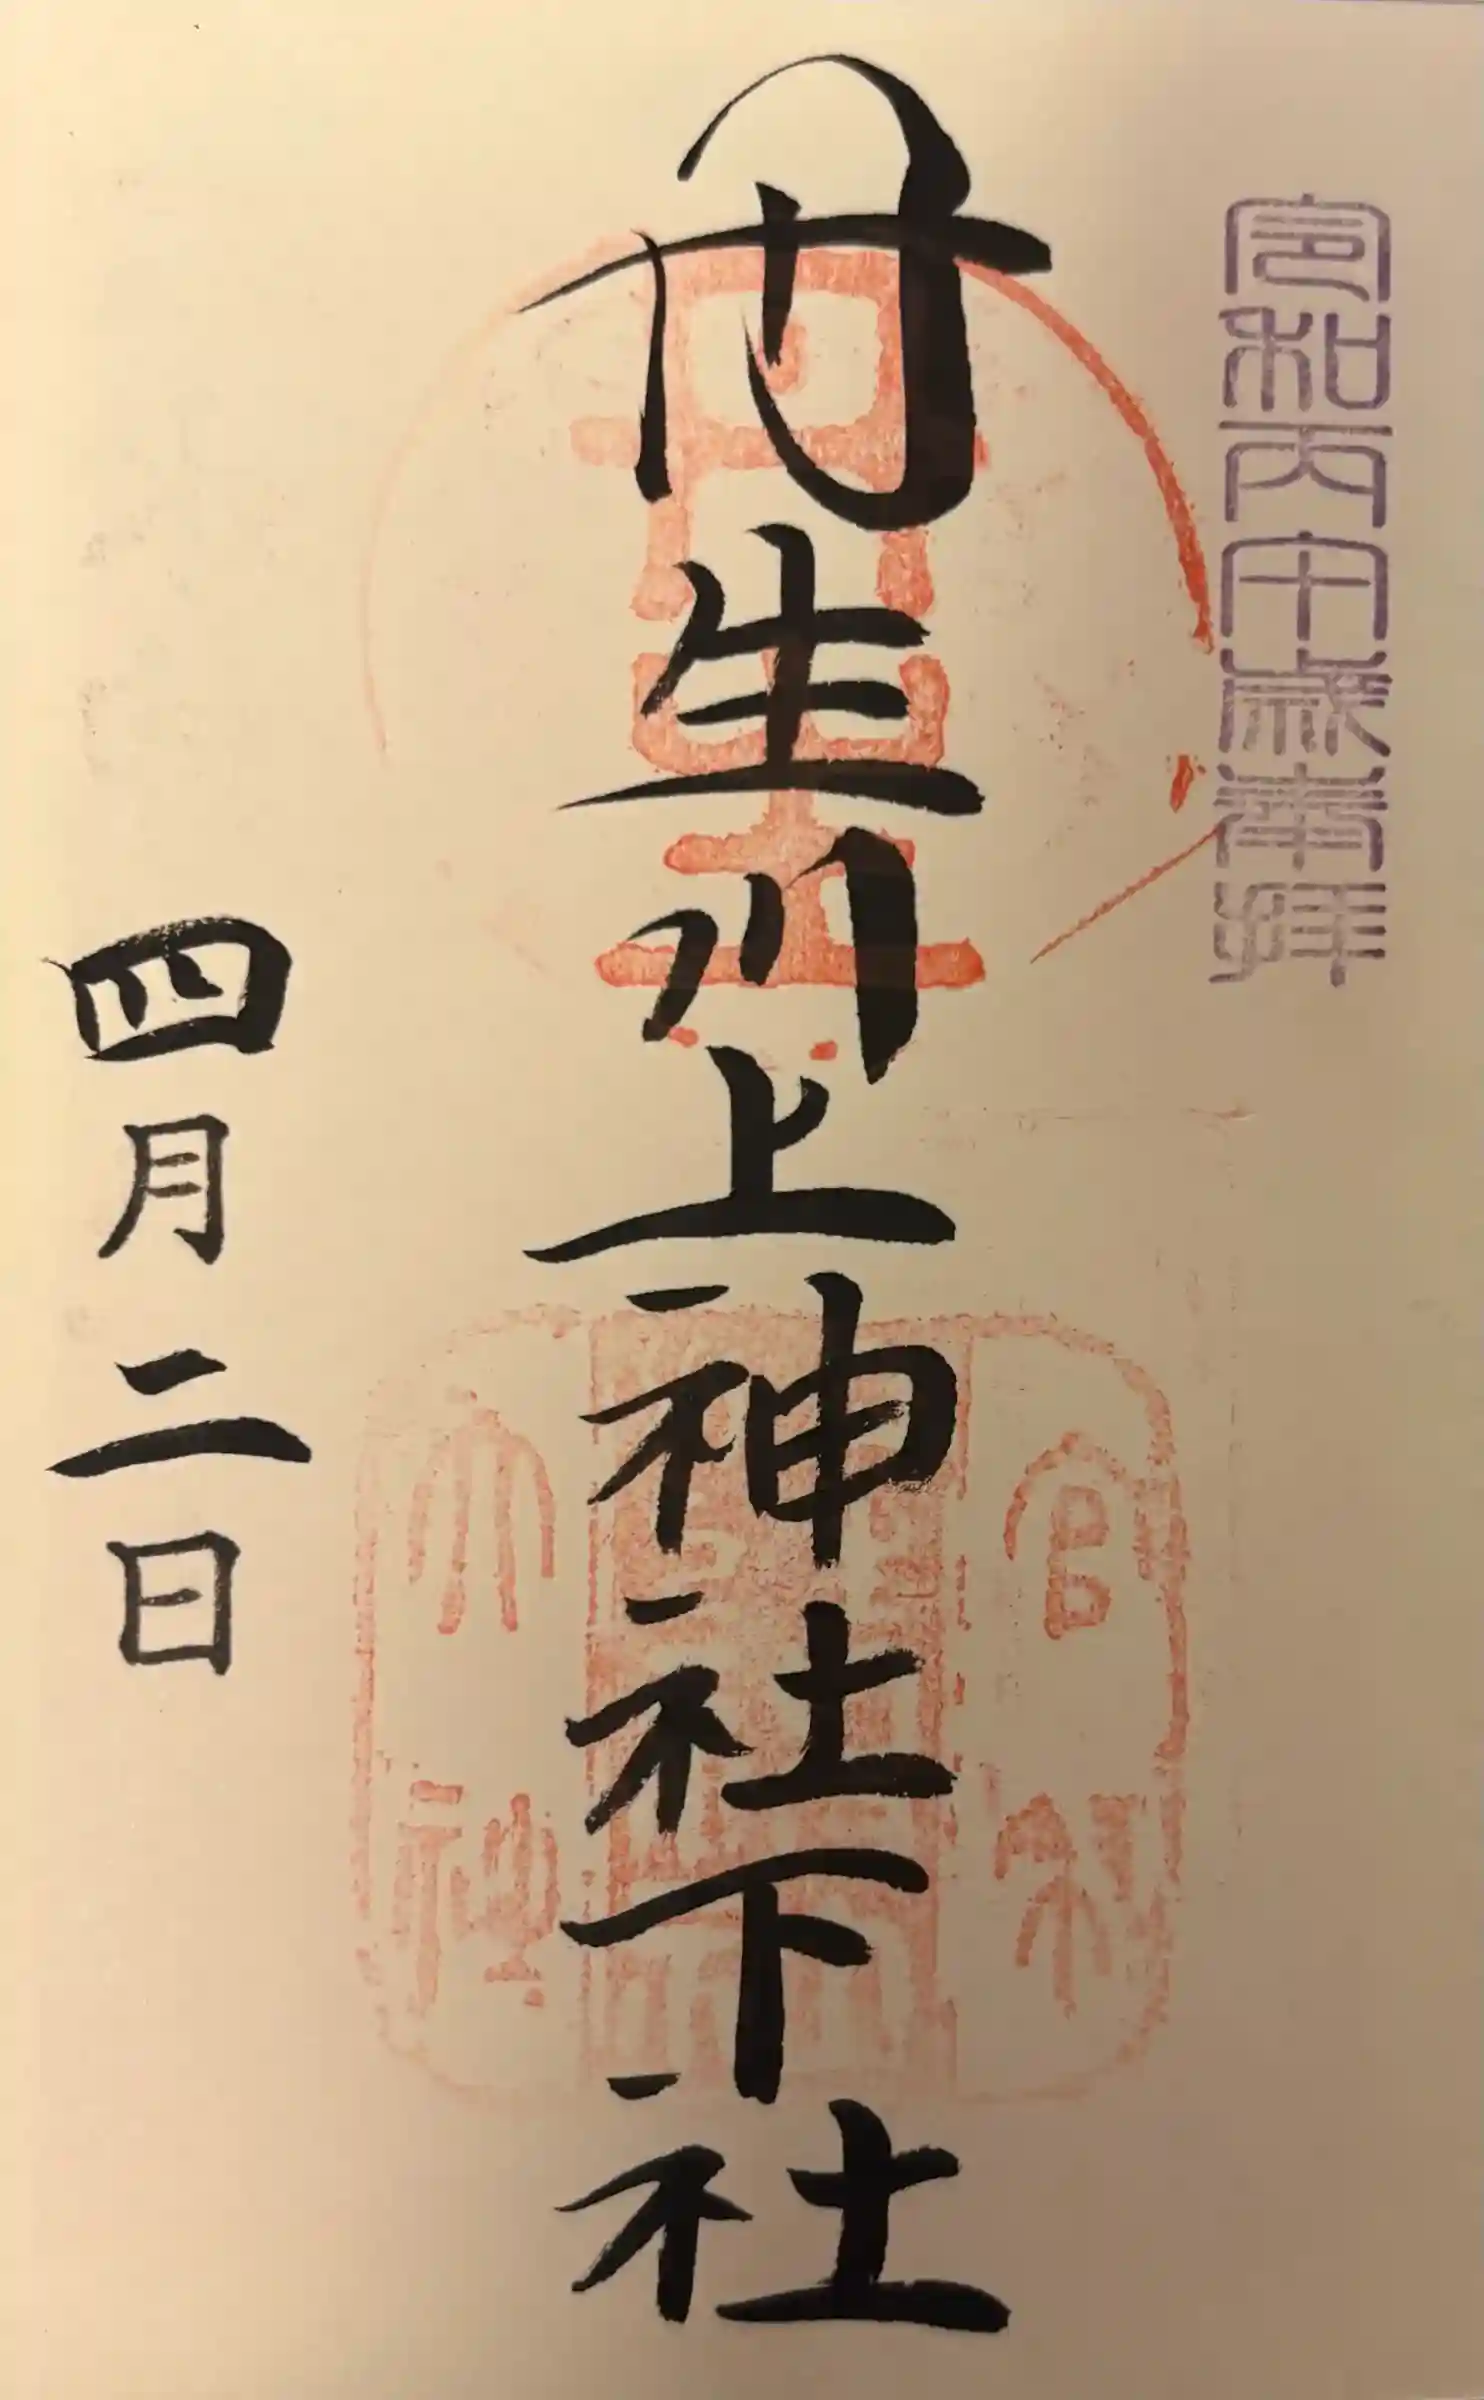 令和丙午歳奉拝
丹生川上神社下社
四月二日